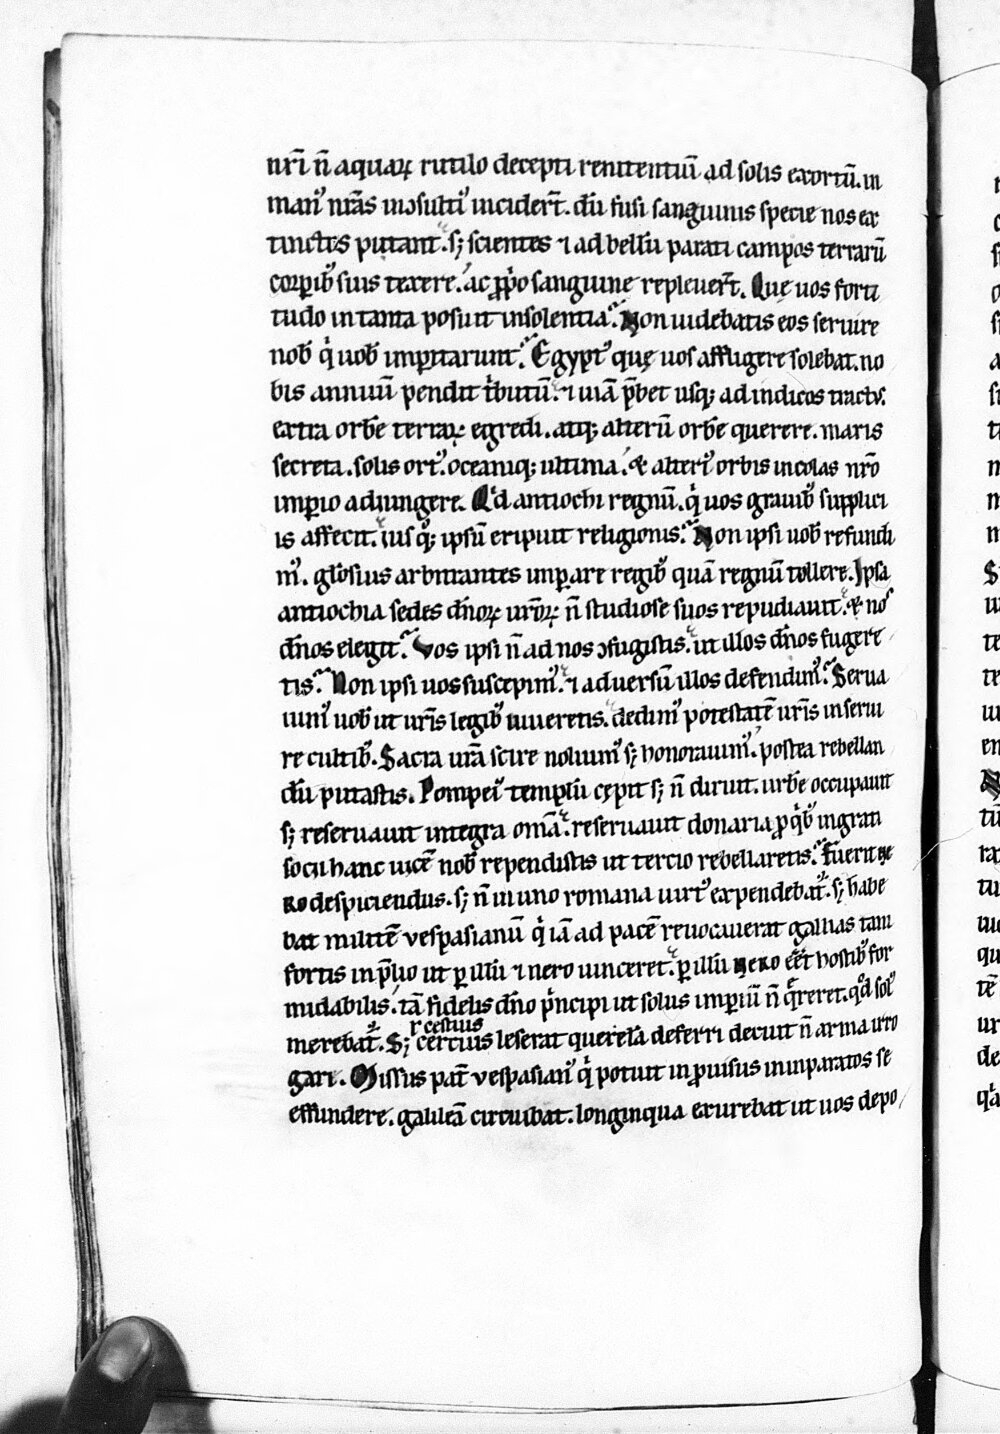 nr̄i n̄ aquaꝝ rutilo decepti renitentiū ad solis exortū. in
manꝰ nr̄as inↄsultiꝰ incider̄t. dū fusi sanguinis specie nos ex
tinctos putant. sꝫ scientes ⁊ ad bellū parati campos terrarū
corꝑibꝰ suis texere. ac ꝓp̄o sanguine repleuer̄t. Quę uos forti
tudo in tanta posuit insolentia. Non uidebatis eos seruire
nob̄ q̇ uob̄ imꝑitarunt. Egyptꝰ quę uos affligere solebat. no
bis annuū pendit tͥbutū. ⁊ uiā p̄bet usqꝫ ad indicos tractꝰ.
extra orbē terraꝝ egredi. atqꝫ alterū orbē querere. maris
secreta. solis ortꝰ. oceaniqꝫ ultima. & alteriꝰ orbis incolas nr̄o
imꝑio adiungere. Qd antiochi regnū. q̇ uos grauibꝰ supplici
is affecit. ipsū eripuit religionis. Non ipsi uob̄ refundi
mꝰ. gl̄osius arbitrantes imꝑare regibꝰ quā regnū tollere. Ipsa
antiochia sedes dn̄oꝝ ur̄oꝝ n̄ studiose suos repudiauit. & nos
dn̄os elegit. Vos ipsi n̄ ad nos ↄfugistis. ut illos dn̄os fugere
tis. Non ipsi uos suscepimꝰ. ⁊ aduersū illos defendimꝰ. Serua
uimꝰ uob̄ ut ur̄is legibꝰ uiueretis. dedimꝰ potestatē ur̄is inserui
re cultibꝰ. Sacra ur̄a scire noluimꝰ sꝫ honorauimꝰ. postea rebellan
dū putastis. Pompeiꝰ templū cępit sꝫ n̄ diruit. urbē occupauit
sꝫ reseruauit integra om̄a. reseruauit donaria ꝓ qͥbꝰ ingrati
socii hanc uicē nob̄ rependistis ut tercio rebellaretis. Fuerit ne
ro despiciendus. sꝫ n̄ in uno romana uirtꝰ expendebat᷑. sꝫ habe
bat militē vespasianū q̇ iā ad pacē reuocauerat gallias tam
fortis in p̄lio ut ꝑ illū ⁊ nero uinceret. ꝑ illū nero eēt hostibꝰ for
midabilis. tā fidelis dn̄o pͥncipi ut solus imꝑiū n̄ q̄reret. qd solꝰ
merebat᷑. Sꝫ cercius leserat querela deferri decuit n̄ arma irro
r cestius
gari. Missus pat̄ vespasianꝰ q̇ potuit in ꝓuisus in inparatos se
effundere. galileā circuibat. longinqua exurebat ut uos depo